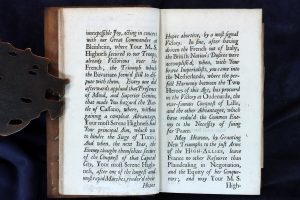 inexpressible Joy, acting in concert
with our Great Commander at
Bleinheim, where Your M. S.
Highness seconded to our Troops,
already Victorious over the
French, the Triumph which
the Bavarians seem'd still to dis-
pute with them. Every one did
afterwards applaud that Presence
of Mind, and Superior Genius,
that made You hazard the Bat-
tle of Cassano, where, without
gaining a compleat Advantage,
Your most Serene Highness had
Your principal Aim, which was
to hinder the Siege of Turin.
And when, the next Year, the
Enemy thought themselves secure
of the Conquest of that Capital
City, Your most Serene High-
ness, after one of the longest and
most rapid Marches, render'd their
Hopes
Hopes abortive, by a most signal
Victory. In fine, after having
driven the French out of Italy,
the British Nation's Desires were
accomplished, when, with Your
brave Imperialists, You came into
the Netherlands, where the per-
fect Harmony between the Two
Heroes of this Age, has procured
us the Victory at Oudenarde, the
ever-famous Conquest of Lisle,
and the other Advantages, which
have reduc'd the Common Ene-
my to the Necessity of suing
for Peace.
May Heaven, by Granting
New Triumphs to the just Arms
of the HIGH-ALLIES, leave
France no other Resource than
Plaindealing in Negotiation,
and the Equity of her Conque-
rors; and may Your M. S.
High-